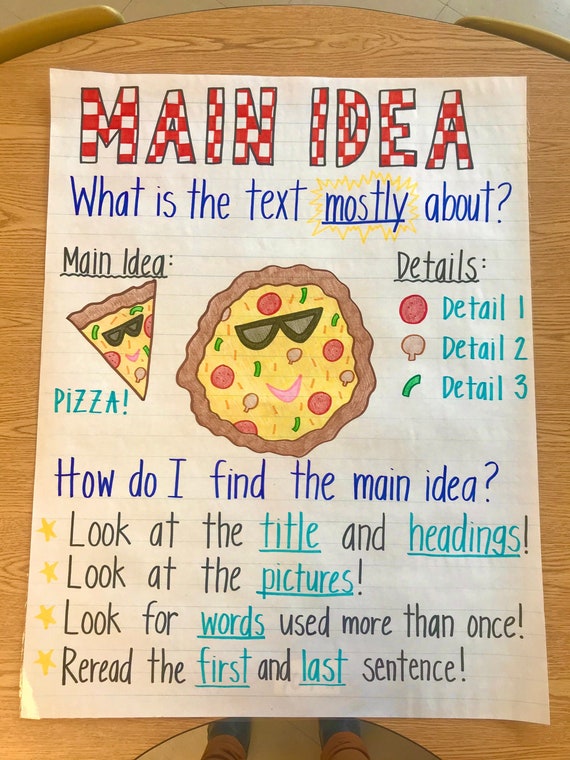 MAIN IDEA
What is the text mostly about?
Main Idea:
PIZZA!
Details:
Detail 1
Detail 2
Detail 3
How do I find the main idea?
Look at the title and headings!
Look at the pictures!
Look for words used more than once!
Reread the first and last sentence!